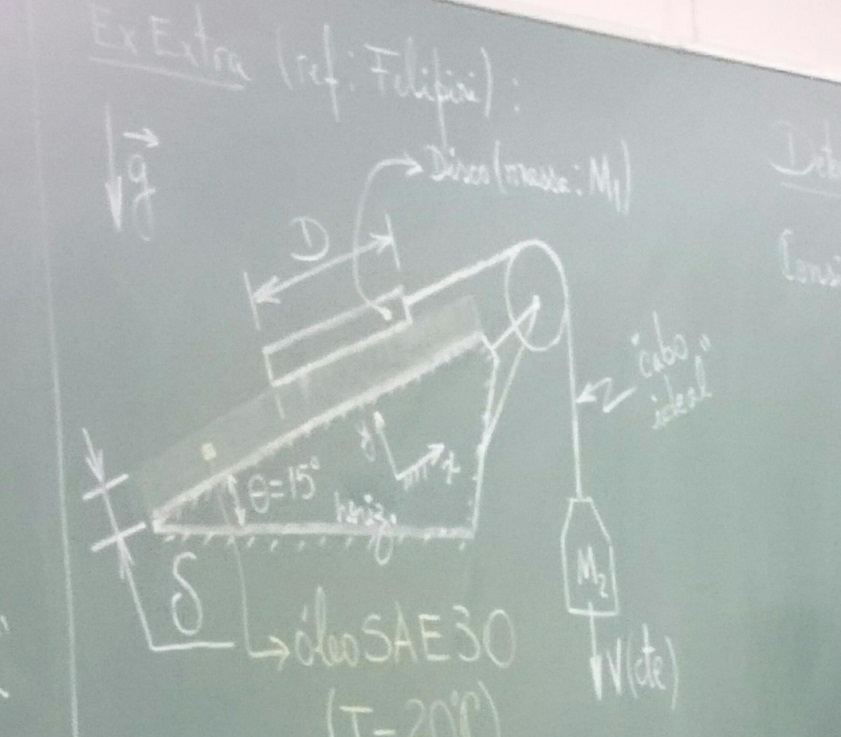 Ex Extra (ref: Felipini):
g
Disco (massa: M1)
D
"cabo
ideal"
y
x
θ=15°
horiz.
δ
M2
óleo SAE30
V(cte)
(T=20°C)
Dete
Consi